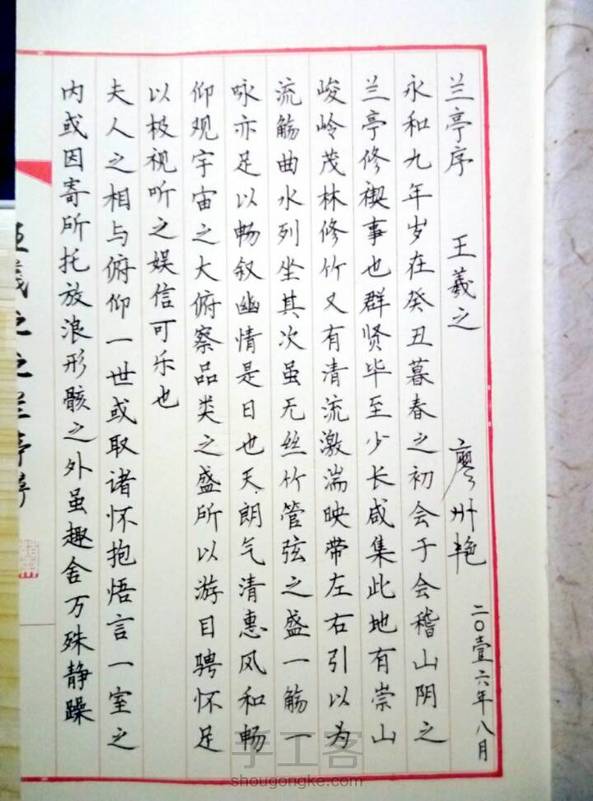 兰亭序 王羲之 廖州艳 二〇壹六年八月
永和九年岁在癸丑暮春之初会于会稽山阴之
兰亭修禊事也群贤毕至少长咸集此地有崇山
峻岭茂林修竹又有清流激湍映带左右引以为
流觞曲水列坐其次虽无丝竹管弦之盛一觞一
咏亦足以畅叙幽情是日也天朗气清惠风和畅
仰观宇宙之大俯察品类之盛所以游目骋怀足
以极视听之娱信可乐也
夫人之相与俯仰一世或取诸怀抱悟言一室之
内或因寄所托放浪形骸之外虽趣舍万殊静躁
王羲之之兰亭序
手工客
shougongke.com